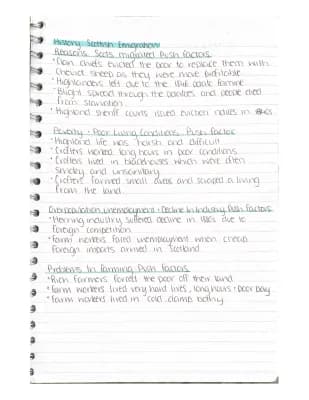 History: Scottish Emigration
Reasons Scots migrated Push factors
• Clan chiefs evicted the poor to replace them with
Cheviot sheep as they were more profitable.
• Highlanders left due to the 1846 potato famine.
• Blight spread through the potatoes and people died
from starvation.
• Highland sheriff courts issued eviction notices in
Poverty + Poor Living Conditions, Push factor
• Highland life was harsh and difficult.
• Crofters worked long hours in poor conditions.
• Crofters lived in blackhouses which were often
smokey and unsanitary.
• Crofters farmed small areas and scraped a living
from the land.
Overpopulation, unemployment + Decline In Industry, Push factors
• Herring industry suffered decline in 1880s due to
foreign competition.
• Farm workers faced unemployment when cheap
foreign imports arrived in Scotland.
Problems In farming Push factors
• Rich farmers forced the poor off their land.
• Farm workers lived very hard lives, long hours + poor pay.
• Farm workers lived in cold, damp bothy.